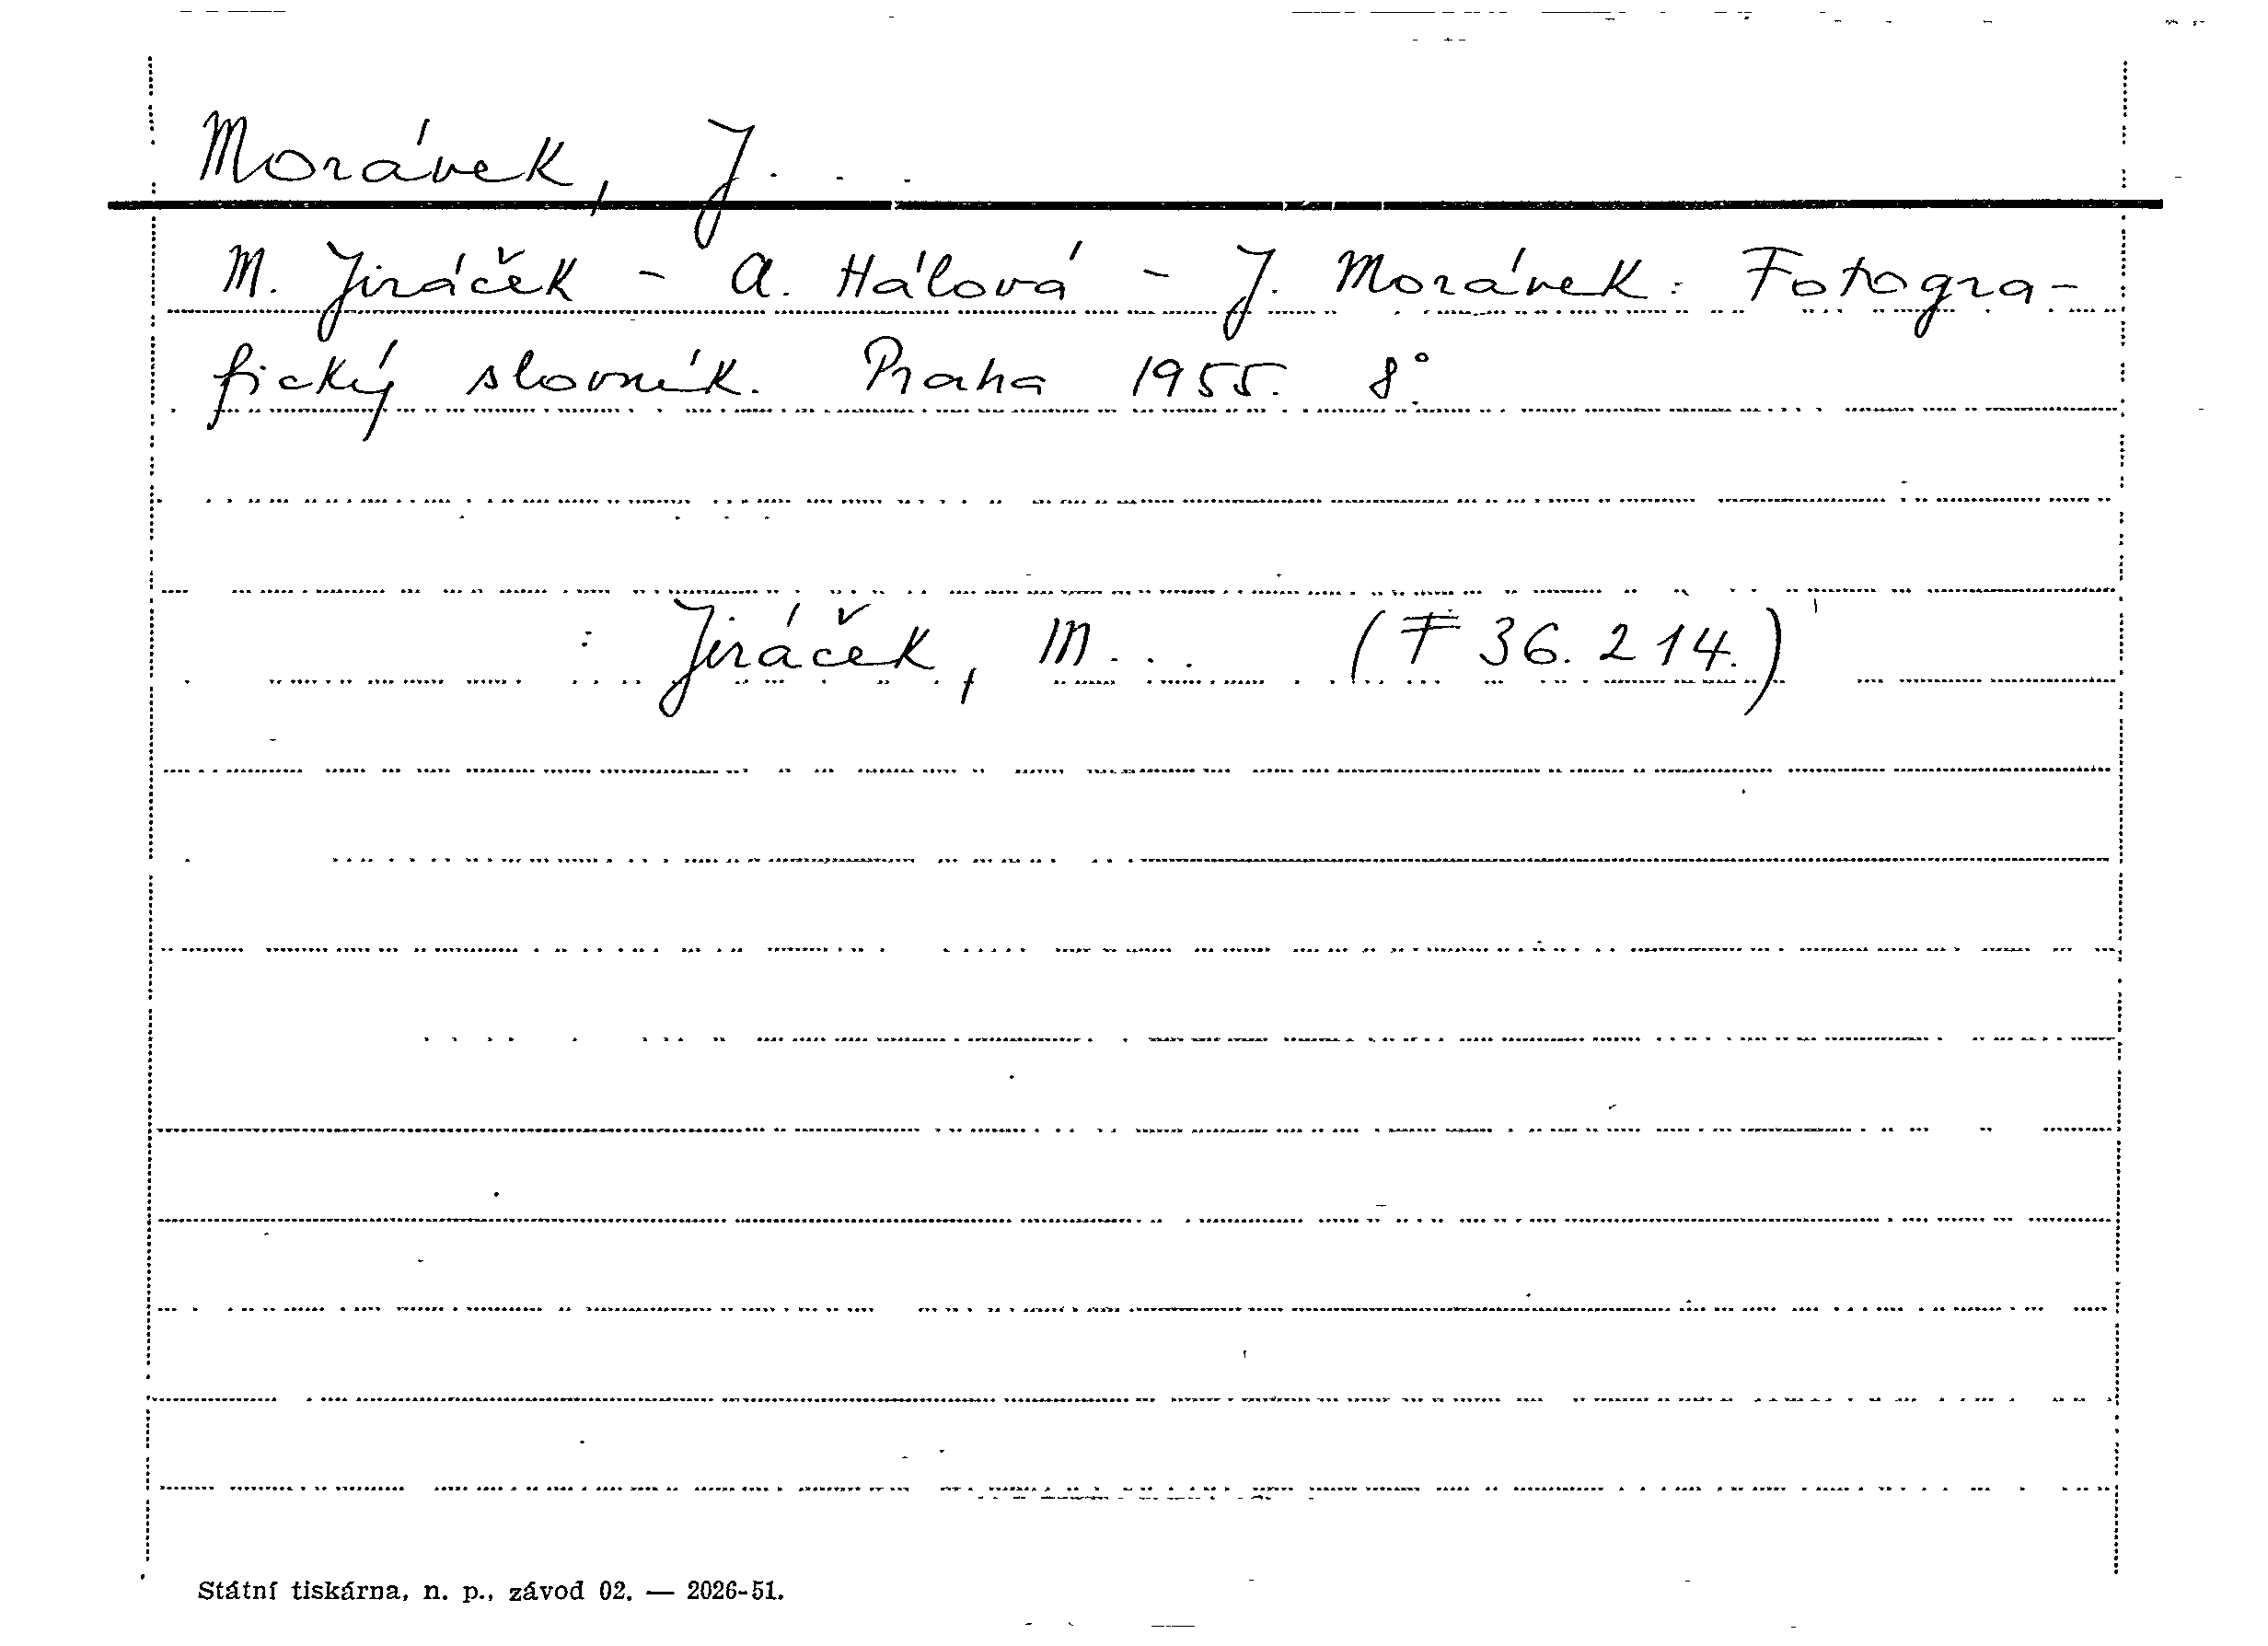 Morávek, J. . .
M. Jiráček - A. Hálová - J. Morávek: Fotogra-
fický slovník. Praha 1955. 8°.
: Jiráček, M. . . (F 36.214.)
Státní tiskárna, n. p., závod 02. — 2026-51.